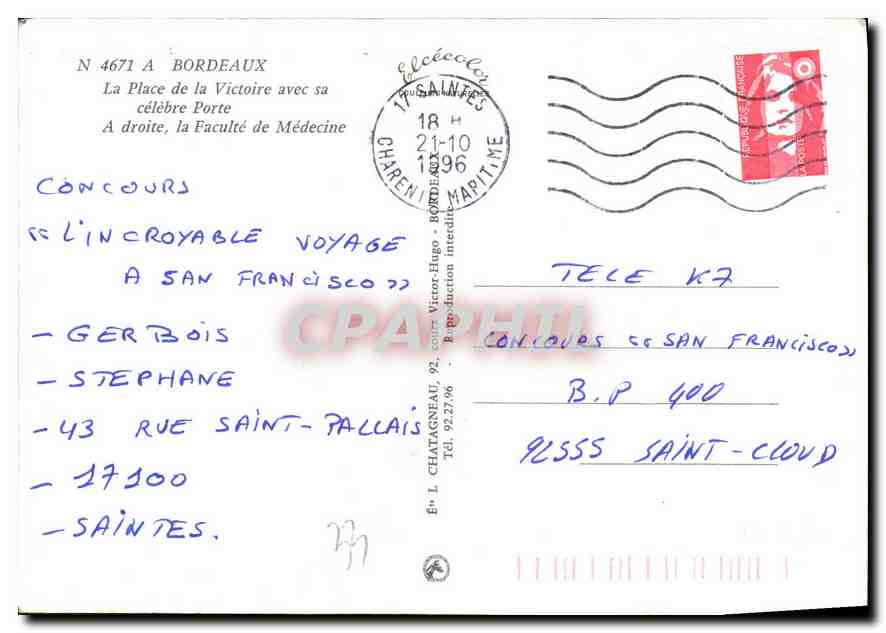 N 4671 A BORDEAUX
La Place de la Victoire avec sa
célèbre Porte
A droite, la Faculté de Médecine
Elcécolor
17 SAINTES
18 H
21-10
1996
CHARENTE MARITIME
REPUBLIQUE FRANÇAISE
LA POSTE
CONCOURS
« L'INCROYABLE VOYAGE
A SAN FRANCISCO »
- GERBOIS
- STEPHANE
- 43 RUE SAINT-PALLAIS
- 17100
- SAINTES.
Éts L. CHATAGNEAU, 92, cours Victor-Hugo - BORDEAUX
Tél. 92.27.96 - Reproduction interdite
TELE K7
CONCOURS « SAN FRANCISCO »
B.P 400
92555 SAINT-CLOUD
CPAPHIL